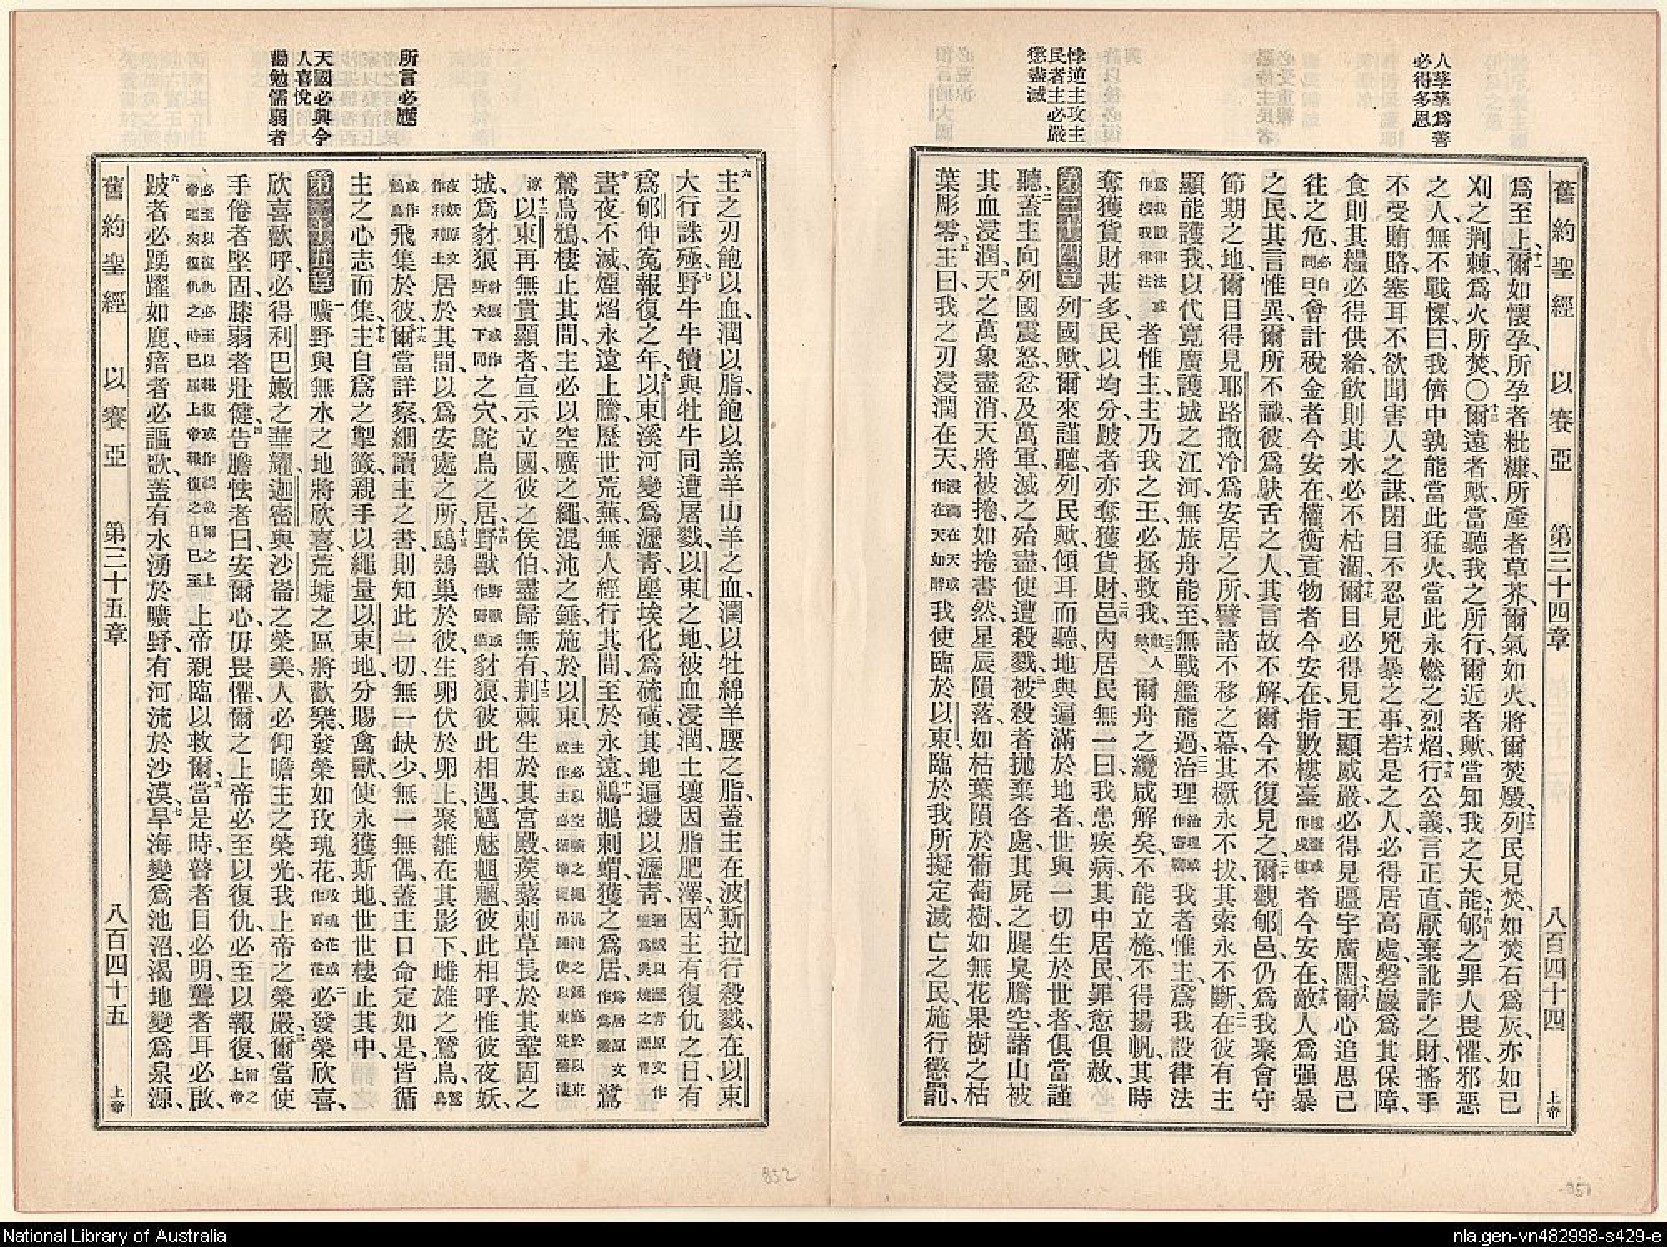 人孳孳爲善
必得多恩
悖逆主攻主
民者主必嚴
懲盡滅
舊約聖經 以賽亞 第三十四章 八百四十四 上帝
爲至上、十一爾如懷孕、所孕者粃糠、所產者草芥、爾氣如火、將爾焚燬、十二列民見焚、如焚石爲灰、亦如已
刈之荆棘、爲火所焚、〇十三爾遠者歟、當聽我之所行、爾近者歟、當知我之大能、十四郇之罪人畏懼、邪惡
之人、無不戰慄、曰、我儕中孰能當此猛火、當此永燃之烈焰、十五行公義、言正直、厭棄訛詐之財、搖手
不受賄賂、塞耳不欲聞害人之謀、閉目不忍見兇暴之事、十六若是之人、必得居高處、磐巖爲其保障、
食則其糧必得供給、飲則其水必不枯涸、十七爾目必得見王顯威嚴、必得見疆宇廣闊、十八爾心追思已
往之危、必自問曰會計稅金者今安在、權衡貢物者今安在、指數樓臺樓臺或作戍樓者今安在、十九敵人爲强暴
之民、其言惟異、爾所不識、彼爲鴃舌之人、其言故不解、爾今不復見之、二十爾觀郇邑、仍爲我聚會守
節期之地、爾目得見耶路撒冷爲安居之所、譬諸不移之幕、其橛永不拔、其索永不斷、二一在彼有主
顯能護我、以代寬廣護城之江河、無旅舟能至、無戰艦能過、二二治理治理或作審鞫我者惟主、爲我設律法
爲我設律法或作授我律法者惟主、主乃我之王、必拯救我、二三敵人歟、爾舟之纜咸解矣、不能立桅、不得揚帆、其時
奪獲貨財甚多、民以均分、跛者亦奪獲貨財、二四邑內居民無一曰我患疾病、其中居民罪愆俱赦、
第三十四章 一列國歟、爾來謹聽、列民歟、傾耳而聽、地與遍滿於地者、世與一切生於世者、俱當謹
聽、二蓋主向列國震怒、忿及萬軍、滅之殆盡、使遭殺戮、三被殺者拋棄各處、其屍之腥臭騰空、諸山被
其血浸潤、四天之萬象盡消、天將被捲、如捲書然、星辰隕落、如枯葉隕於葡萄樹、如無花果樹之枯
葉彫零、五主曰、我之刃浸潤在天、浸潤在天或作在天如醉我使臨於以東、臨於我所擬定滅亡之民、施行懲罰、
所言必應
天國必興令
人喜悅
勗勉懦弱者
六主之刃飽以血、潤以脂、飽以羔羊山羊之血、潤以牡綿羊腰之脂、蓋主在波斯拉行殺戮、在以東
大行誅殛、七野牛牛犢與牡牛同遭屠戮、以東之地、被血浸潤、土壤因脂肥澤、八因主有復仇之日、有
爲郇伸冤報復之年、九以東溪河變爲瀝青、塵埃化爲硫磺、其地遍燬以瀝青、
十晝夜不滅、煙焰永遠上騰、歷世荒蕪、無人經行其間、至於永遠、十一鵜鶘刺蝟獲之爲居、爲居原文作爲業鷺
鷥烏鴉、棲止其間、主必以空曠之繩、混沌之錘、施於以東、
十二以東再無貴顯者、宣示立國、彼之侯伯、盡歸無有、十三荆棘生於其宮殿、蒺藜刺草長於其鞏固之
城、爲豺狼豺狼或作野犬下同之穴、鴕鳥之居、十四野獸豺狼、彼此相遇、魑魅魍魎、彼此相呼、惟彼夜妖、
居於其間、以爲安處之所、十五鴟鵂巢於彼、生卵伏於卵上、聚雛在其影下、雌雄之鷲鳥、
飛集於彼、十六爾當詳察細讀主之書、則知此一切無一缺少、無一無偶、蓋主口命定如是、皆循
主之心志而集、十七主自爲之掣籤、親手以繩量以東地、分賜禽獸、使永獲斯地、世世棲止其中、
第三十五章 一曠野與無水之地將欣喜、荒墟之區將歡樂、發榮如玫瑰花、玫瑰花或作百合花二必發榮欣喜、
欣喜歡呼、必得利巴嫩之華耀、迦密與沙崙之榮美、人必仰瞻主之榮光、我上帝之榮嚴、三爾當使
手倦者堅固、膝弱者壯健、四告膽怯者曰、安爾心、毋畏懼、爾之上帝必至以復仇、必至以報復、
上帝親臨以救爾、五當是時瞽者目必明、聾者耳必啟、
六跛者必踴躍如鹿、瘖者必謳歌、蓋有水湧於曠野、有河流於沙漠、七旱海變爲池沼、渴地變爲泉源、
舊約聖經 以賽亞 第三十五章 八百四十五 上帝
852
851
National Library of Australia
nla.gen-vn482998-s429-e